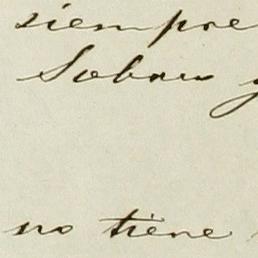 siempre
Sobran y
no tiene